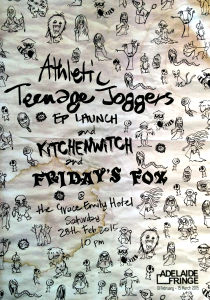 Athletic
Teenage Joggers
EP LAUNCH
and
KITCHENWITCH
and
FRIDAY'S FOX
the Grace Emily Hotel
Saturday
28th Feb 2015
10pm
ADELAIDE
FRINGE
13 February - 15 March 2015